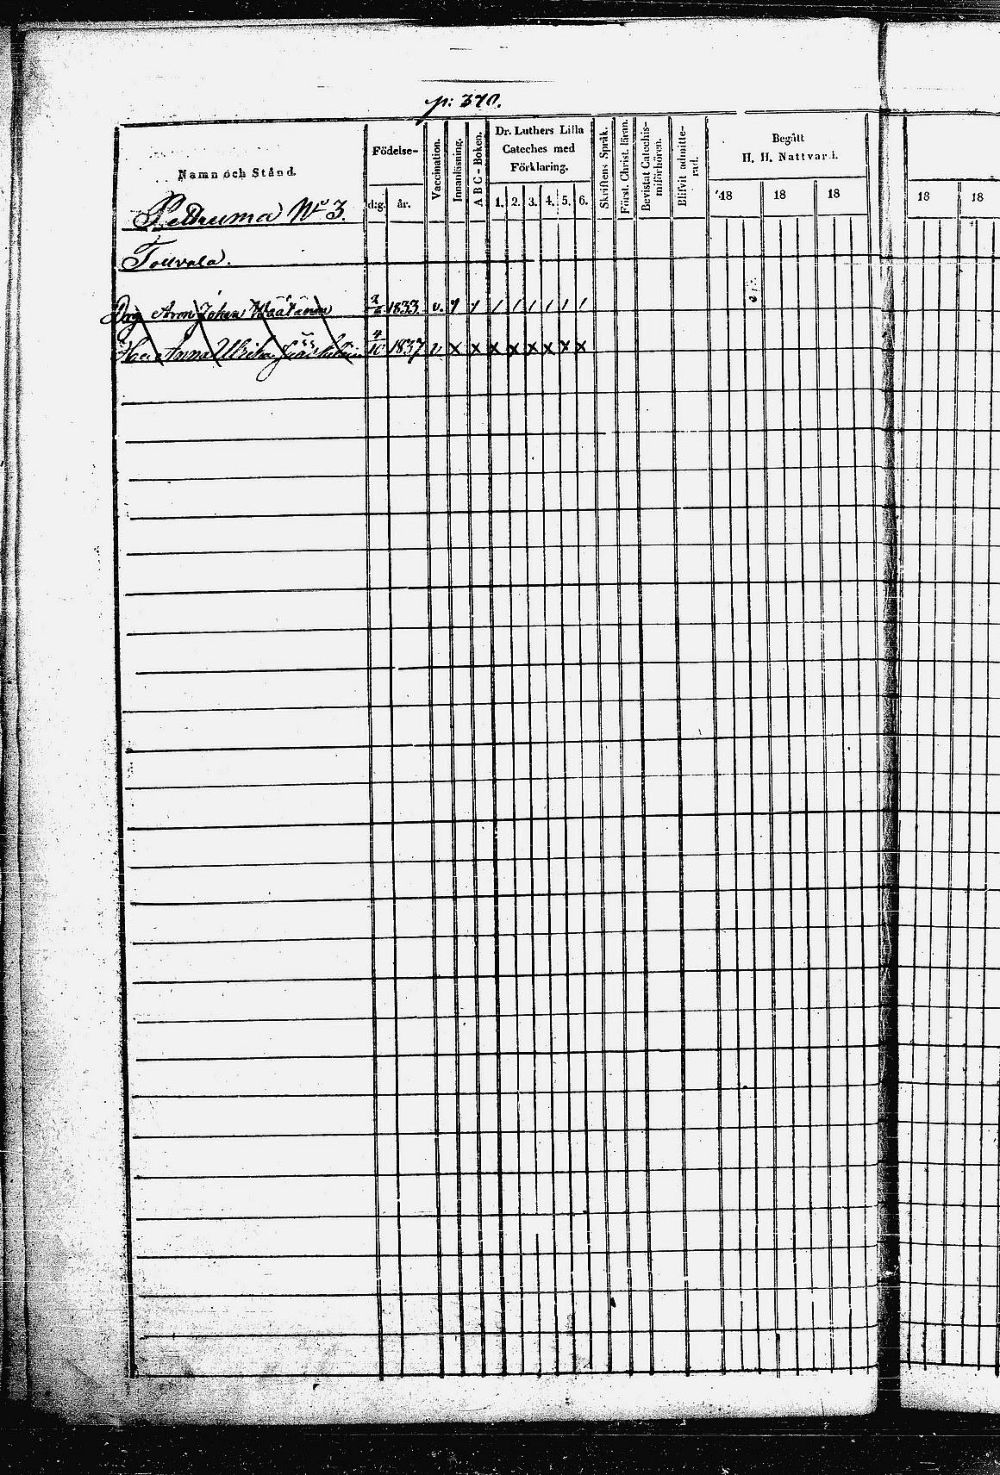 p: 370.
Namn och Stånd.
Födelse-
dag. år.
Vaccination.
Innanläsning.
ABC-Boken.
Dr. Luthers Lilla
Cateches med
Förklaring.
1. 2. 3. 4. 5. 6.
Skriftens Språk.
Först. Christ. läran.
Bevistat Catechis-
miförhören.
Blifvit admitte-
rad.
Begått
H. H. Nattvard.
18 18 18
18 18
No 3.
Aron Johan Väätäinen 1833. v.
Anna Ulrika 1837 v x x x x x x x x